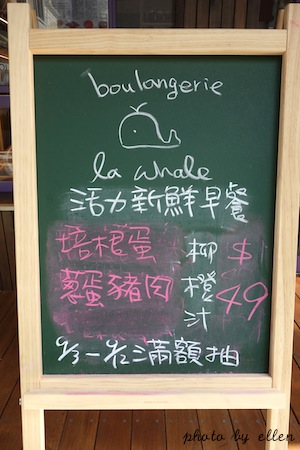 boulangerie
la whale
活力新鮮早餐
培根蛋
蔥蛋豬肉
柳橙汁
$49
9/3-9/12滿額抽
photo by ellen